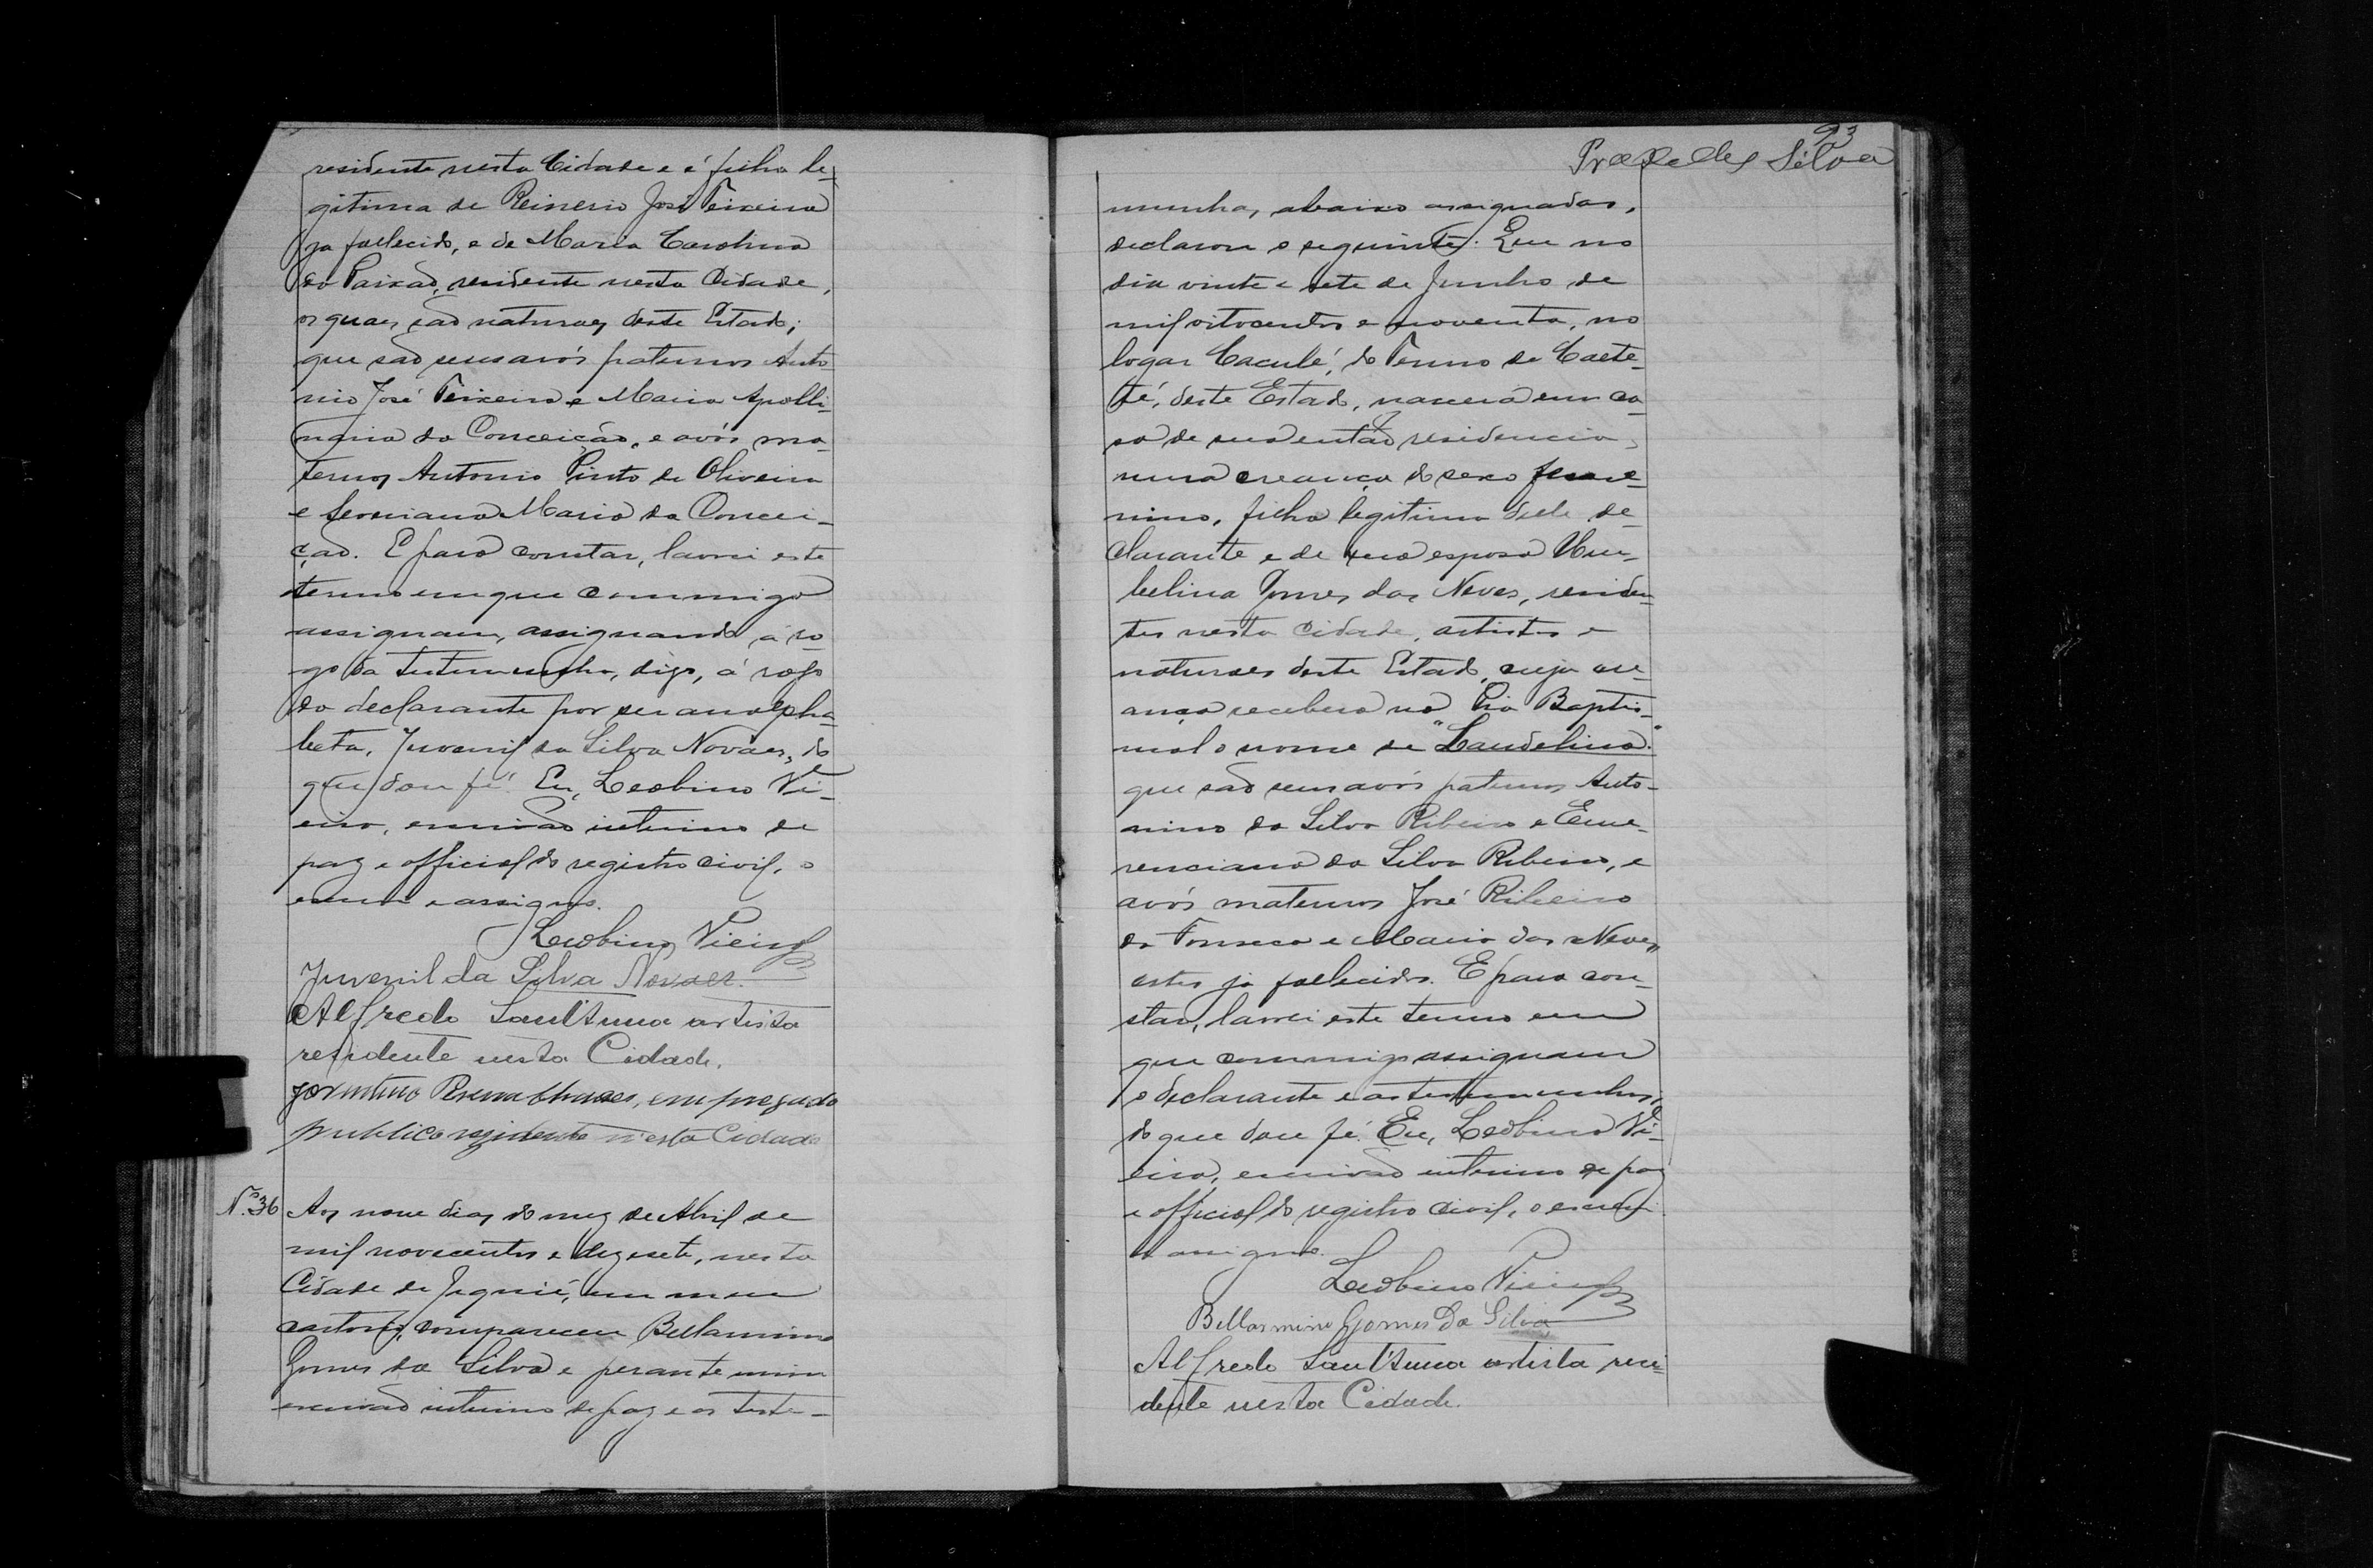 residente nesta Cidade e é filha le-
gitima de Reinerio José Teixeira
ja fallecido, e de Maria Carolina
da Paixaõ, residente nesta Cidade,
os quaes saõ naturaes deste Estado;
que saõ seus avós paternos Anto
nio José Teixeira e Maria Apolli-
naria da Conceiçaõ, e avós ma-
ternos Antonio Pinto de Oliveira
e Maria da Concei-
çaõ. E para constar, lavrei este
termo em que commigo
assignam, assignando á ro-
go da testemunha, digo, á rogo
da declarante por ser analpha-
beta, Juvenil da Silva Novaes, do
que dou fé. Eu, Leobino Vi-
eira, escrivaõ interino de
paz e official do registro civil, o
escrevi e assigno.
Leobino Vieira
Juvenil da Silva Novaes.
Alfredo Sant'Anna artista
residente nesta Cidade.
empregado
publico residente n'esta Cidade
Nº. 36 Aos nove dias do mez de Abril de
mil novecentos e dezesete, nesta
Cidade de Jequié, em meu
cartorio, compareceu Bellarmino
Gomes da Silva e perante mim
escrivaõ interino de paz e as teste-
93
Praxedes Silva
munhas abaixo assignadas,
declarou o seguinte: Que no
dia vinte e sete de Junho de
mil oitocentos e noventa, no
logar Caculé, do Termo de Caete-
té, deste Estado, nascera em ca-
sa de sua entaõ residencia,
uma creança do sexo feme-
nino, filha legitima delle de-
clarante e de sua esposa Um-
belina Gomes das Neves, residen-
tes nesta cidade, artistas e
naturaes deste Estado, cuja cre-
ança recebera na Pia Baptis-
mal o nome de "Laudelina."
que saõ seus avós paternos Anto-
nino da Silva Ribeiro e Eme-
renciana da Silva Ribeiro, e
avós maternos José Ribeiro
da Fonseca e Maria das Neves,
estes já fallecidos. E para con-
star, lavrei este termo em
que commigo assignam
o declarante e as testemunhas,
do que dou fé. Eu, Leobino Vi-
eira, escrivaõ interino de paz
e official do registro civil, o escrevi
e assigno.
Leobino Vieira
Bellarmino Gomes da Silva
Alfredo Sant'Anna artista resi-
dente nesta Cidade.